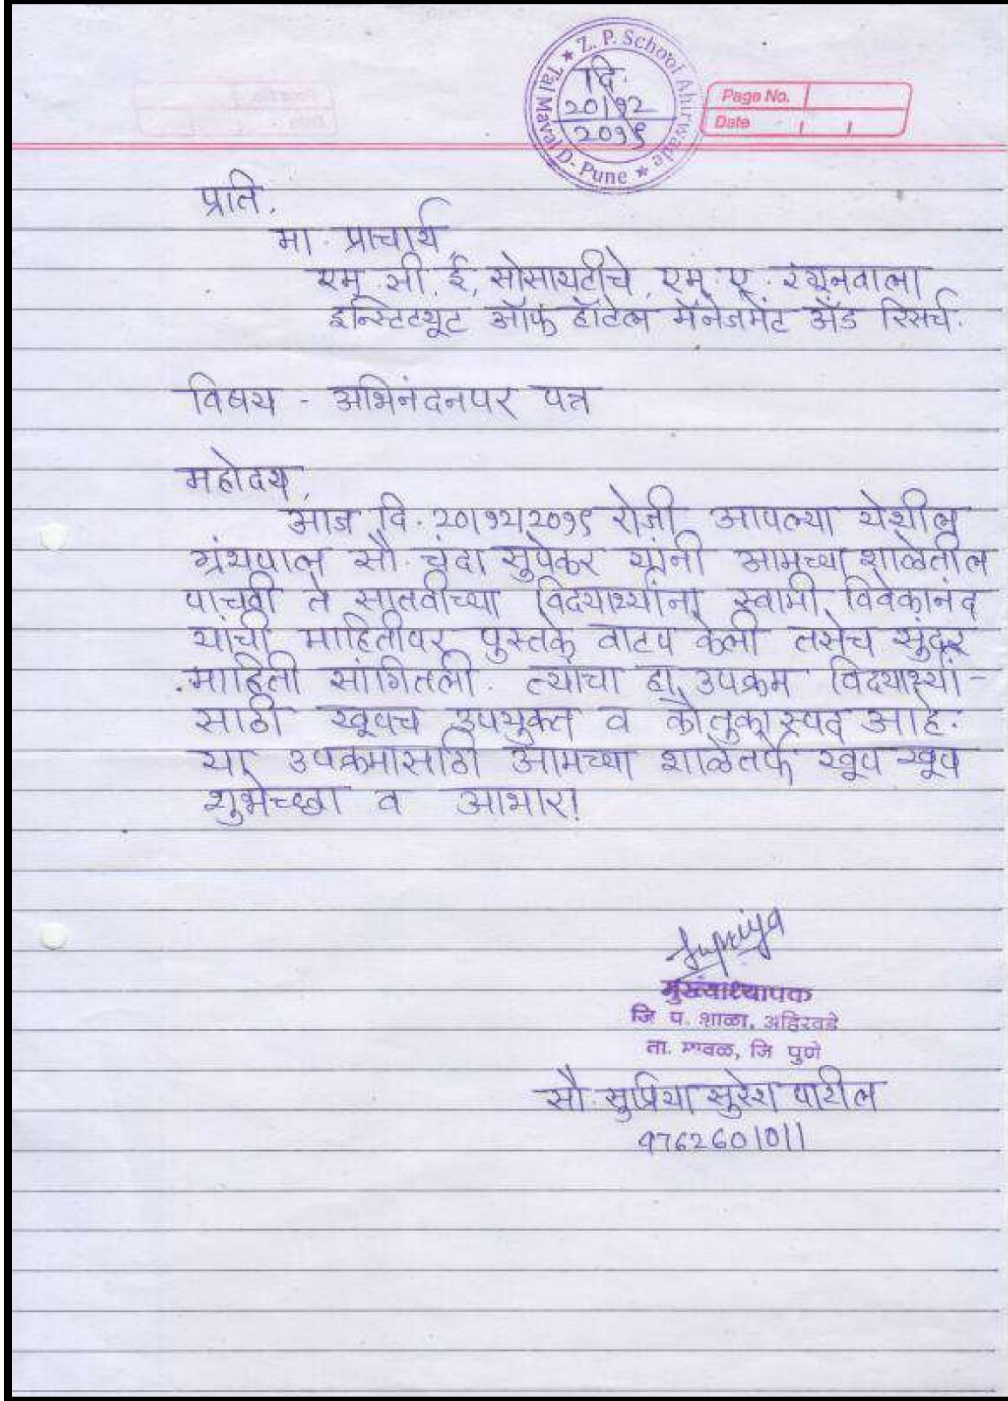 Z. P. School Ahirwade
Tal Maval D- Pune
दि.
२०/१२
२०१९
Page No.
Date
प्रति,
मा. प्राचार्य,
एम. सी. ई. सोसायटीचे, एम. ए. रंगूनवाला
इन्स्टिट्यूट ऑफ हॉटेल मॅनेजमेंट अँड रिसर्च.
विषय - अभिनंदनपर पत्र
महोदय,
आज दि. २०/१२/२०१९ रोजी आपल्या येथील
ग्रंथपाल सौ. चंदा सुपेकर यांनी आमच्या शाळेतील
पाचवी ते सातवीच्या विदयार्थ्यांना स्वामी विवेकानंद
यांची माहितीपर पुस्तके वाटप केली तसेच सुंदर
माहिती सांगितली. त्यांचा हा उपक्रम विदयार्थ्यां-
साठी खूपच उपयुक्त व कौतुकास्पद आहे.
या उपक्रमासाठी आमच्या शाळेतर्फे खूप खूप
शुभेच्छा व आभार!
Supriya
मुख्याध्यापक
जि प. शाळा, अहिरवडे
ता. मावळ, जि पुणे
सौ. सुप्रिया सुरेश पाटील
9762601011